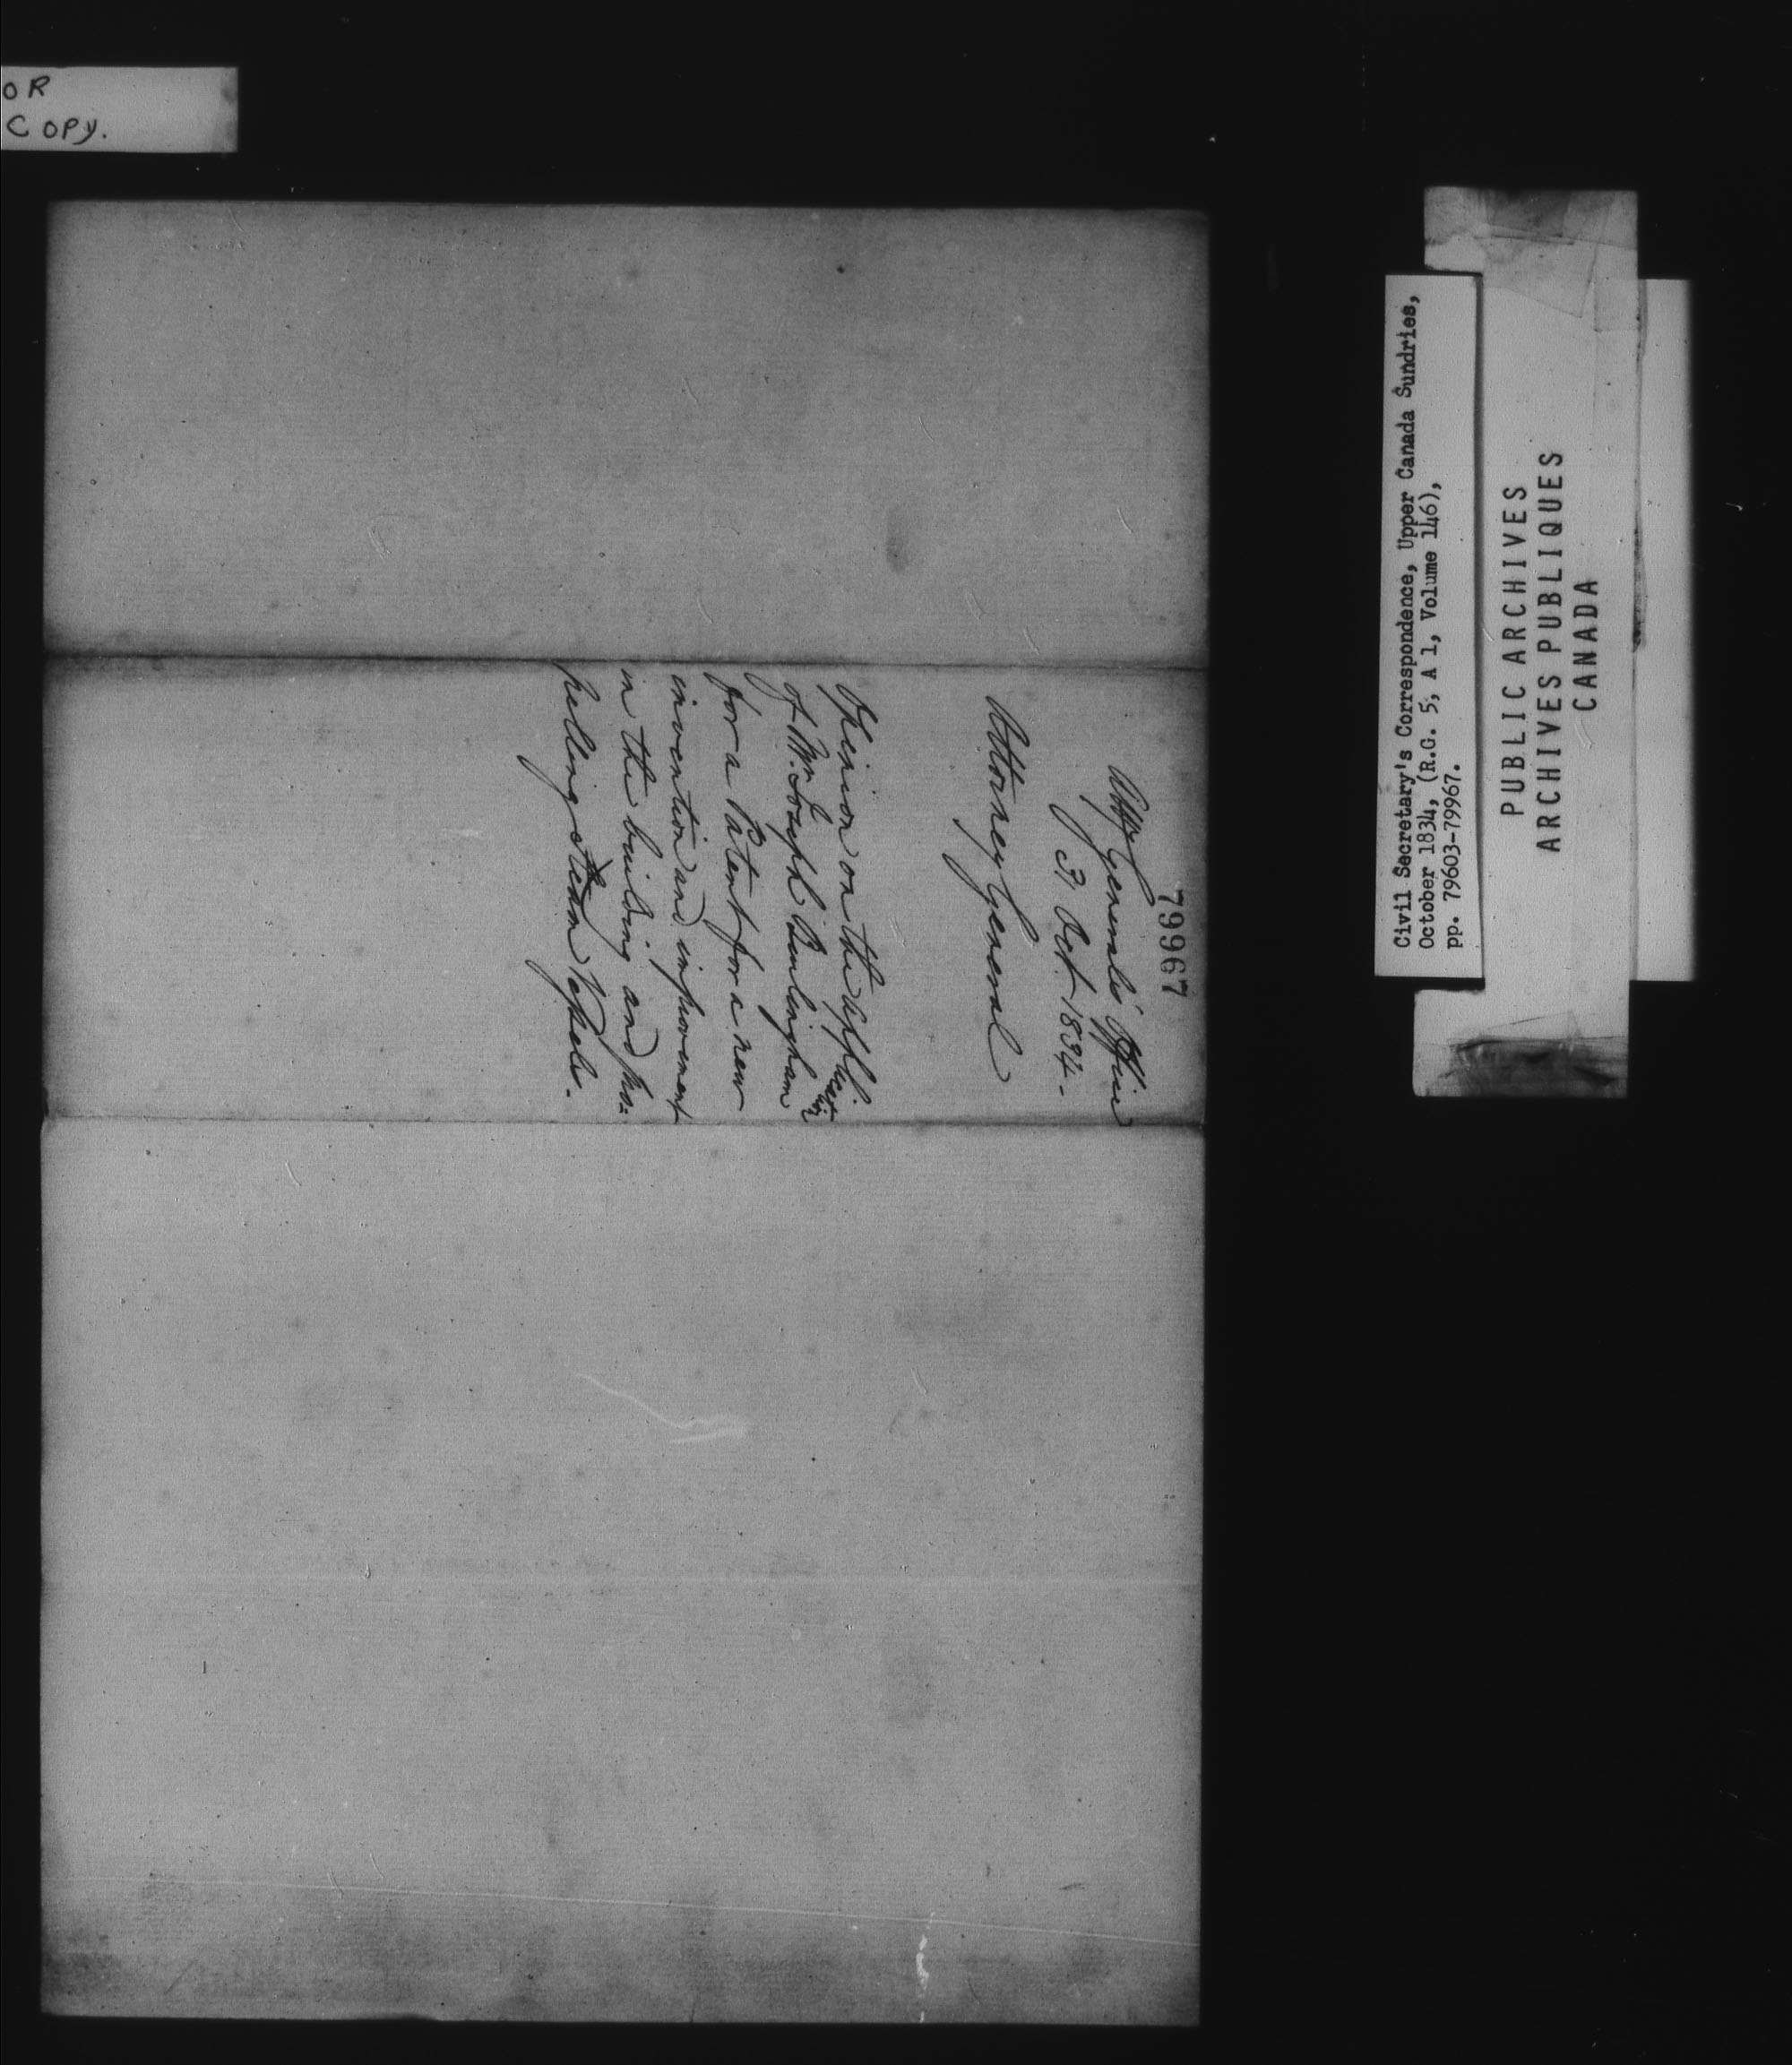 OR
COPY.
79967
Atty Generals Office
31 Oct. 1834.
Attorney General
Opinion on the application
of Mr. Joseph Burlingham
for a Patent for a new
invention and improvement
in the building and pro=
pelling steam Vessels.
Civil Secretary's Correspondence, Upper Canada Sundries,
October 1834, (R.G. 5, A 1, Volume 146),
pp. 79603-79967.
PUBLIC ARCHIVES
ARCHIVES PUBLIQUES
CANADA